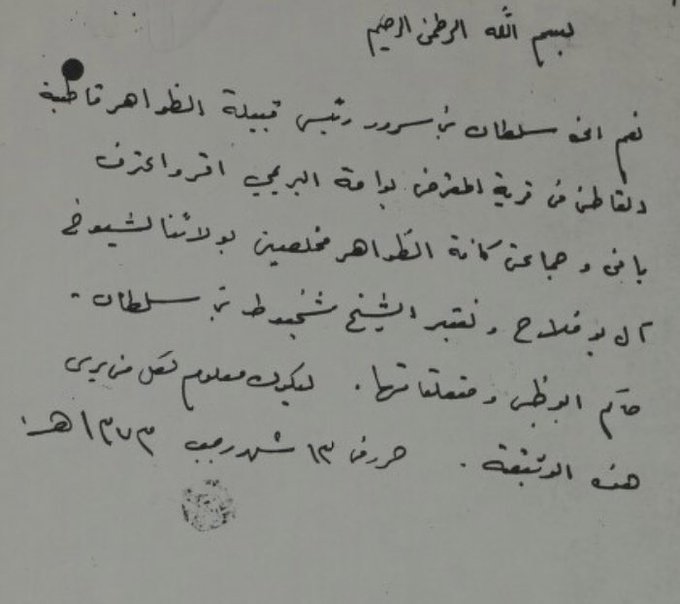 بسم الله الرحمن الرحيم
نعم انه سلطان بن سرور رئيس قبيلة الظواهر قاطبة
القاطن في قرية المعترض بواحة البريمي اقر واعترف
بانني وجماعتي كافة الظواهر مخلصين بولائنا لشيوخ
آل بو فلاح ونعتبر الشيخ شخبوط بن سلطان
حاكم ابوظبي ومتعلقاتها. ليكون معلوم لكل من يرى
هذه الوثيقة. حرر في ١٣ شهر رجب ١٣٧٣هـ